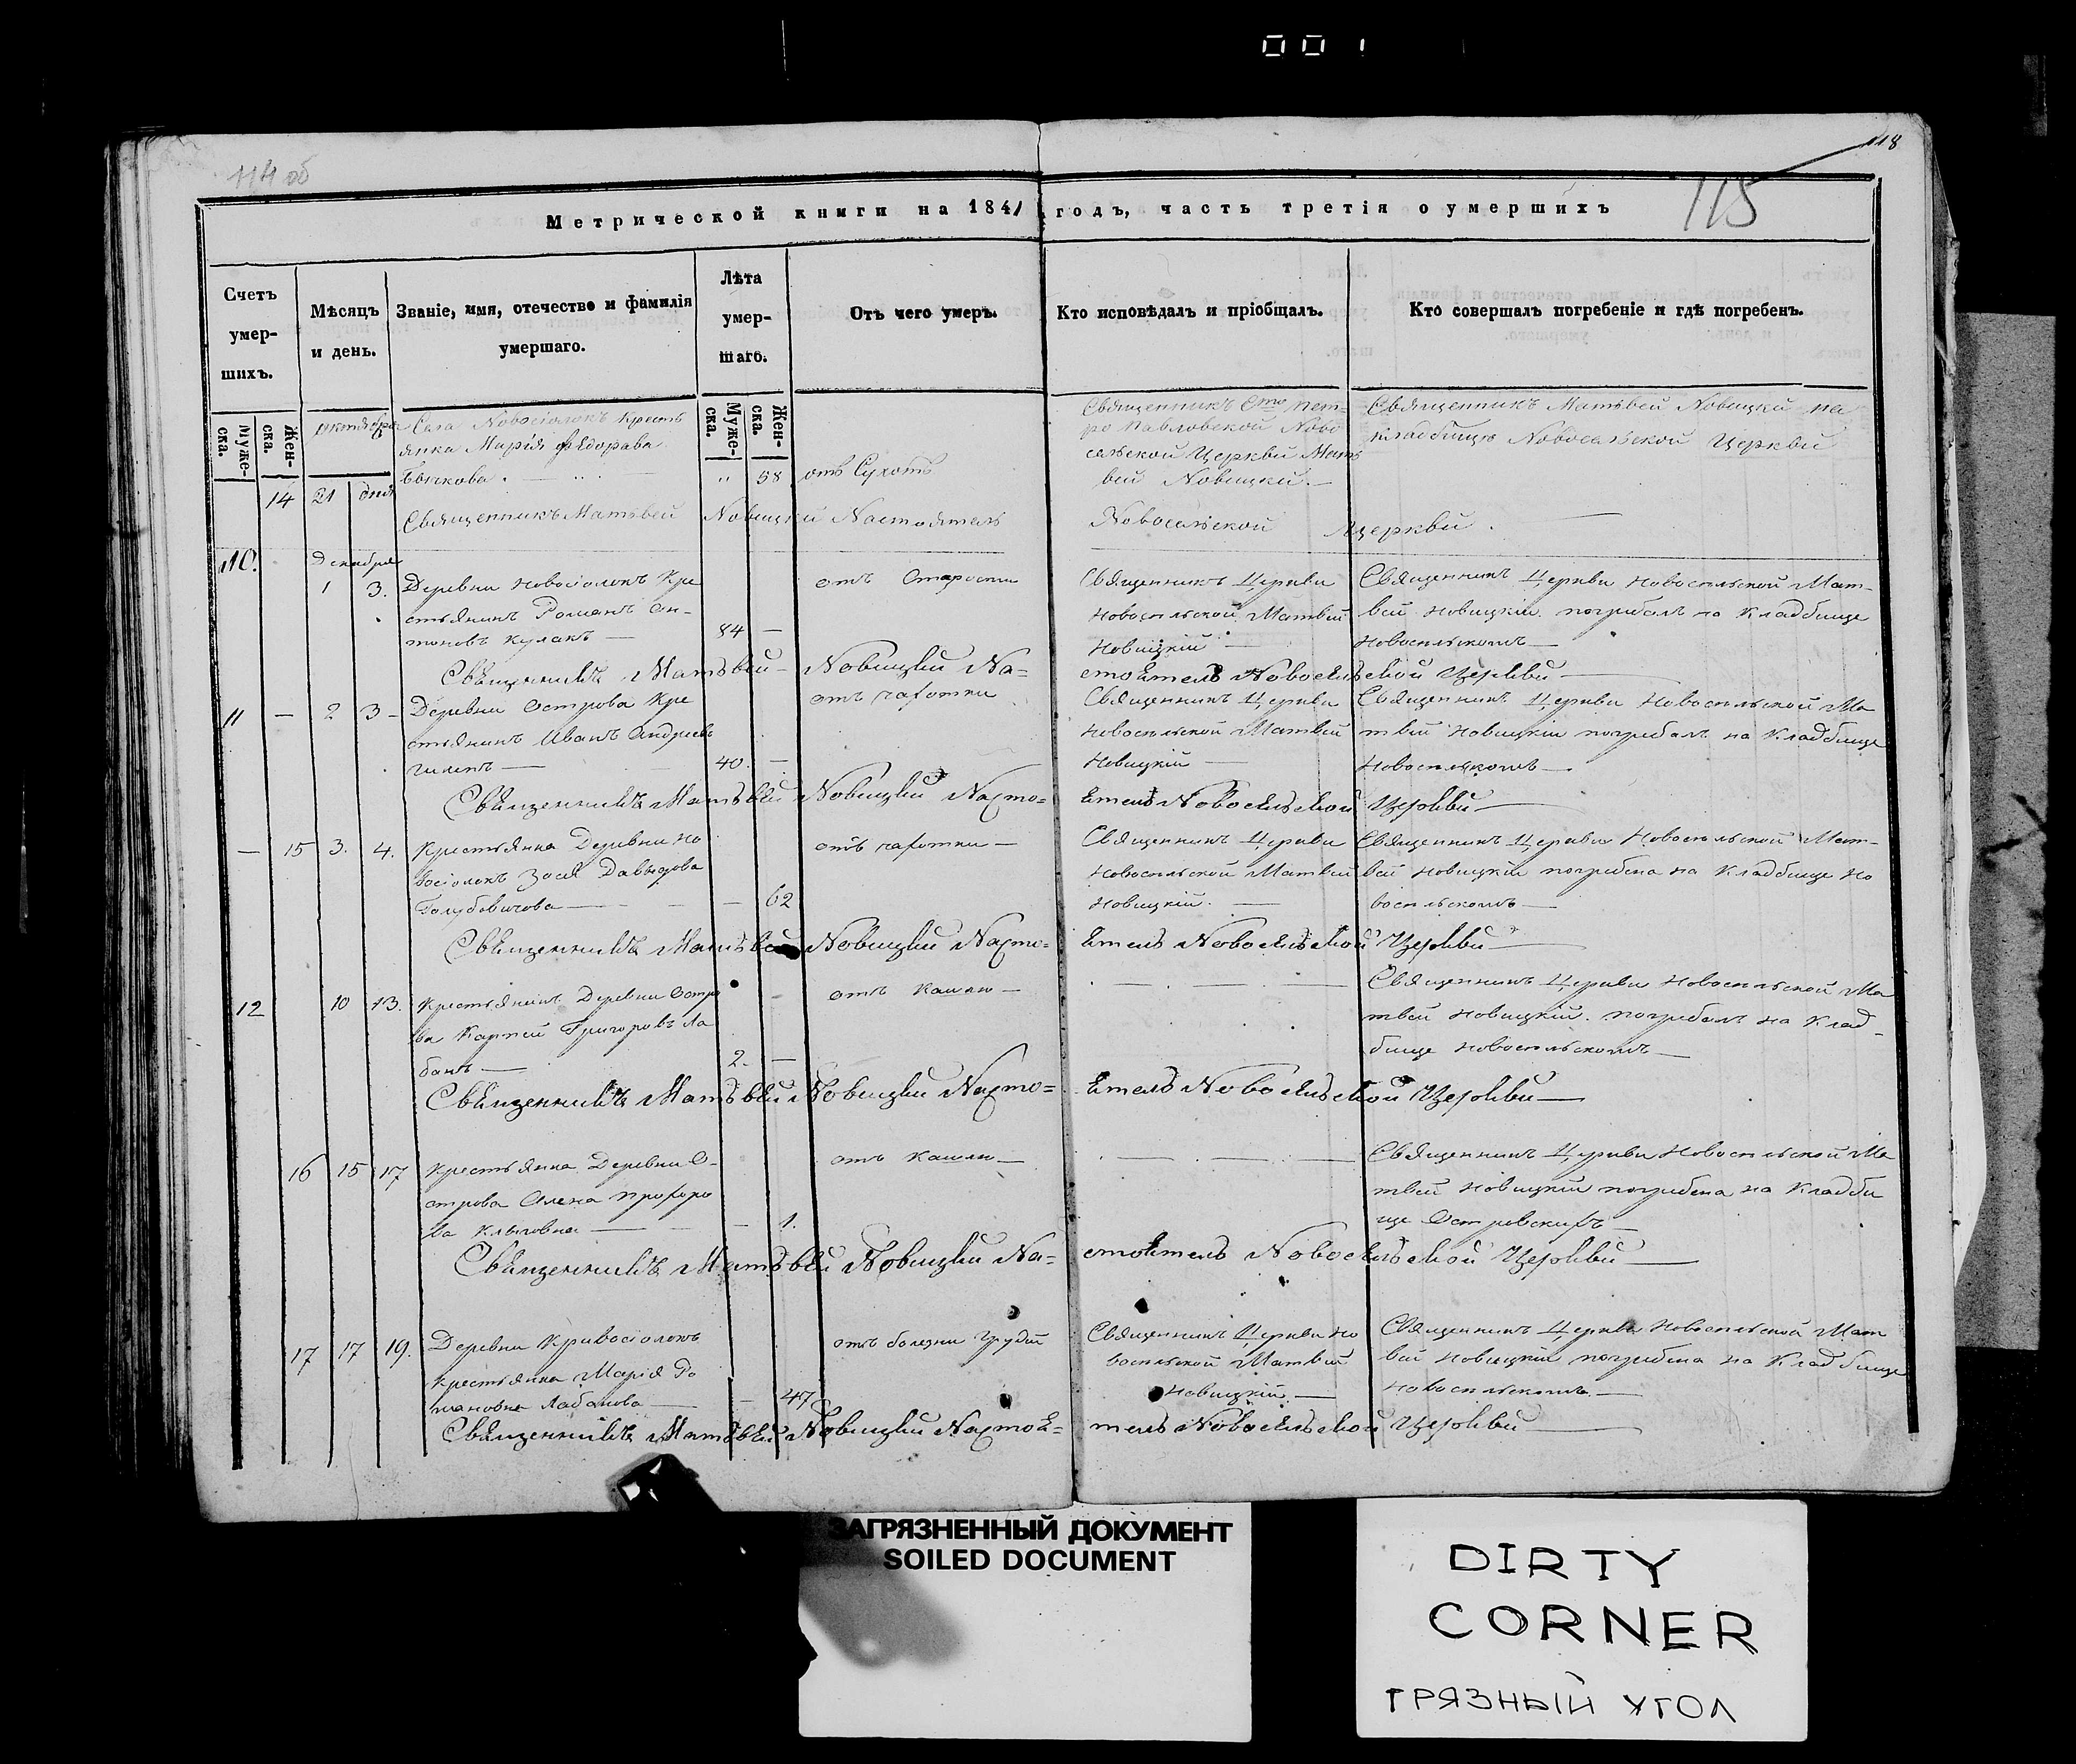 001
114 об
118
115
Метрической книги на 1841 годъ, часть третія о умершихъ
Счетъ умер-шихъ.
Мѣсяцъ и день.
Званіе, имя, отечество и фамилія умершаго.
Лѣта умер-шаго.
Отъ чего умеръ.
Кто исповѣдалъ и пріобщалъ.
Кто совершалъ погребеніе и гдѣ погребенъ.
Муже-ска.
Жен-ска.
Муже-ска.
Жен-ска.
октября
Села Новосіолокъ Кресть
янка Марія Ѳедорава
14 21 дня
58 отъ Сухотъ
Священникъ Сто Пет-
ро Павловской Ново
сельской Церкви Мат
вей Новицкй.
Священникъ Матвей Новицкй на
кладбищѣ Новосельской Церкви
Священникъ Матвей Новицкй Настоятель Новосельской Церкви.
10.
Декабря
1 3. Деревни Новосіолокъ Кре
стьянинъ Романъ Ан-
тоновъ Кулакъ —
84 —
отъ Старости
Священникъ Церкви
Новосельской Матвей
Новицкій —
Священникъ Церкви Новосельской Мат-
вей Новицкій. погребалъ на Кладбище
Новосельскомъ —
Священникъ Матвей Новицкй На=
стоятель Новосельской Церкви —
11 — 2 3 — Деревни Острова Кре
стьянинъ Иванъ Андреевъ
40. —
отъ чахотки
Священникъ Церкви
Новосельской Матвей
Новицкій —
Священникъ Церкви Новосельской Ма
твей Новицкій погребалъ на Кладбище
Новосельскомъ —
Священникъ Матвей Новицкй Насто=
ятель Новосельской Церкви —
— 15 3. 4. Крестьянка Деревни Но
восіолокъ Зося Давыдова
Голубовичова —
— 62
отъ чахотки —
Священникъ Церкви
Новосельской Матвей
Новицкій. —
Священникъ Церкви Новосельской Мат-
вей Новицкій погребена на Кладбище Но
восельскомъ —
Священникъ Матвей Новицкй Насто=
ятель Новосельской Церкви —
12 10 13. Крестьянинъ Деревни Остро
ва Карпей Григоровъ Ла
банъ —
2. —
отъ Кашлю —
Священникъ Церкви Новосельской Ма
твей Новицкій. погребалъ на Клад-
бище Новосельскомъ —
Священникъ Матвей Новицкй Насто=
ятель Новосельской Церкви —
16 15 17 Крестьянка Деревни О-
строва Олена Прохоро
ва
— 1.
отъ Кашлю —
Священникъ Церкви Новосельской Ма
твей Новицкій погребена на Кладби
ще Островскихъ —
Священникъ Матвей Новицкй На=
стоятель Новосельской Церкви —
17 17 19. Деревни Кривосіолокъ
Крестьянка Марія Ро
мановна Лабанова —
— 47
отъ болезни грудей
Священникъ Церкви Но
восельской Матвей
Новицкій —
Священникъ Церкви Новосельской Мат
вей Новицкій погребена на Кладбище
Новосельскомъ. —
Священникъ Матвей Новицкй Настоя=
тель Новосельской Церкви —
ЗАГРЯЗНЕННЫЙ ДОКУМЕНТ
SOILED DOCUMENT
DIRTY
CORNER
ГРЯЗНЫЙ УГОЛ